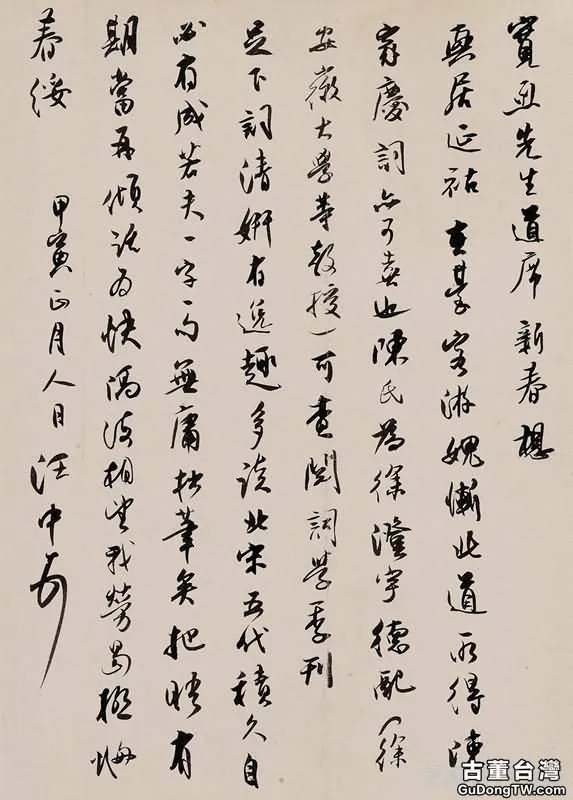 寶先生道席新春想
居延祜客游媿慚此道得陳
家慶詞亦可喜也陳氏為徐澄宇德配(徐
安徽大學等教授)可查閱詞學季刊
足下詞清妍有逸趣多讀北宋五代積久自
必有成若夫一字一句無庸筆矣把晤有
期當再傾談為快波相望我勞曷極
春綏
甲寅正月人日汪中
古董台灣
GuDongTW.com